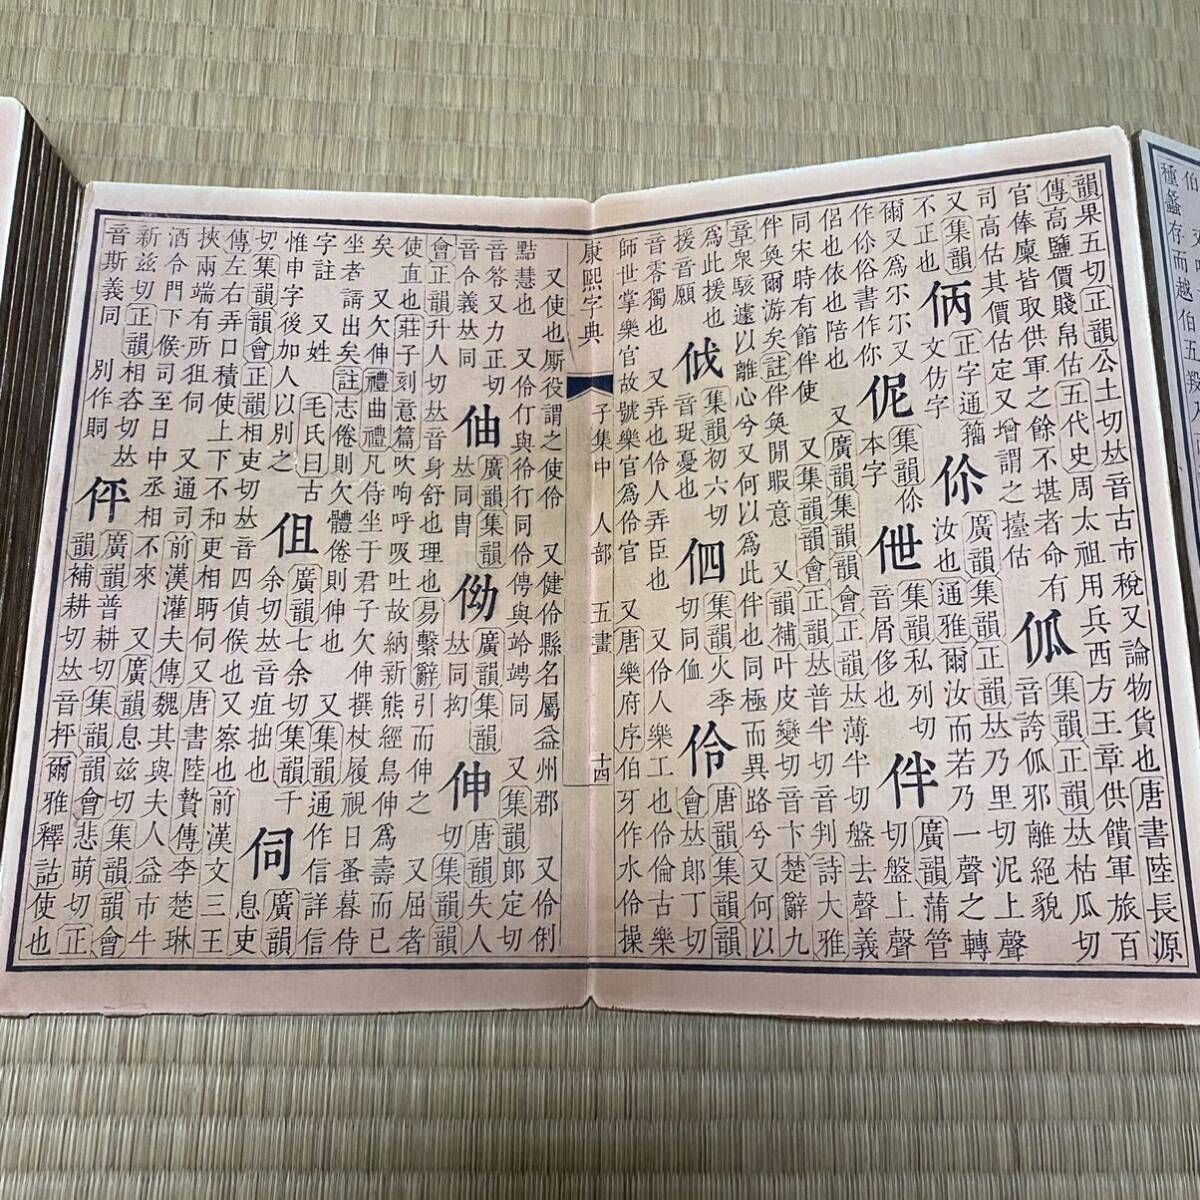 韻果五切正韻公土切𠀤音古市稅又論物貨也唐書陸長源
傳高鹽價賤帛估五代史周太祖用兵西方王章供饋軍旅百
官俸廩皆取供軍之餘不堪者命有
司高估其價估定又增謂之擡估
集韻正韻𠀤枯瓜切
音誇邪離絕貌
又集韻
不正也
㑂
正字通籀
文仿字
伱
廣韻集韻正韻𠀤乃里切泥上聲
汝也通雅爾汝而若乃一聲之轉
爾又爲尒尒又
作伱俗書作你
伲
集韻伱
本字
伳
集韻私列切
音屑侈也
伴
廣韻蒲管
切盤上聲
侶也依也陪也 又廣韻集韻韻會正韻𠀤薄半切盤去聲義
同宋時有館伴使 又集韻韻會正韻𠀤普半切音判詩大雅
伴奐爾游矣註伴奐閒暇意 又韻補叶皮變切音卞楚辭九
章眾駭遽以離心兮又何以爲此伴也同極而異路兮又何以
爲此援也
援音願
集韻初六切
音珿憂也
伵
集韻火季
切同侐
伶
唐韻集韻韻
會𠀤郎丁切
音零獨也 又弄也伶人弄臣也 又伶人樂工也伶倫古樂
師世掌樂官故號樂官爲伶官 又唐樂府序伯牙作水伶操
康熙字典 子集中 人部 五畫 十四
又使也厮役謂之使伶 又健伶縣名屬益州郡 又伶俐
點慧也 又伶仃與彾仃同伶俜與竛竮同 又集韻郎定切
音答又力正切
音令義𠀤同
伷
廣韻集韻
𠀤同冑
㑃
廣韻集韻
𠀤同抝
伸
唐韻失人
切集韻韻
會正韻升人切𠀤音身舒也理也易繫辭引而伸之 又屈者
使直也莊子刻意篇吹呴呼吸吐故納新熊經鳥伸爲壽而已
矣 又欠伸禮曲禮凡侍坐于君子欠伸撰杖屨視日蚤暮侍
坐者請出矣註志倦則欠體倦則伸也 又集韻通作信詳信
字註 又姓 毛氏曰古
惟申字後加人以別之
伹
廣韻七余切集韻千
余切𠀤音疽拙也
伺
廣韻
息吏
切集韻韻會正韻相吏切𠀤音四偵候也又察也前漢文三王
傳左右弄口積使上下不和更相眄伺又唐書陸贄傳李楚琳
挾兩端有所狙伺 又通司前漢灌夫傳魏其與夫人益市牛
酒令門下候司至日中丞相不來 又廣韻息兹切集韻韻會
新兹切正韻相咨切𠀤
音斯義同 別作覗
伻
廣韻普耕切集韻韻會悲萌切正
韻補耕切𠀤音抨爾雅釋詁使也